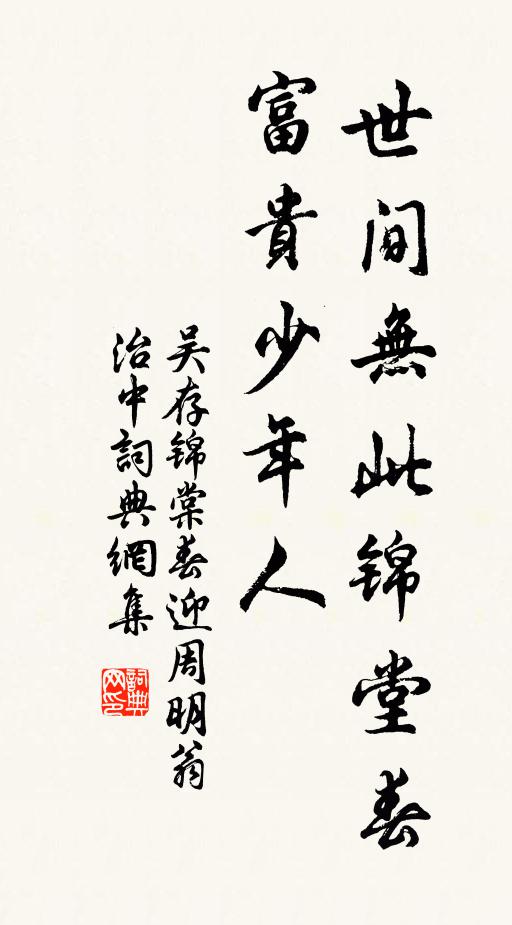 世間無此锦堂春
富貴少年人
吴存锦棠春迎周明翁
治中詞典網集
詞典网印